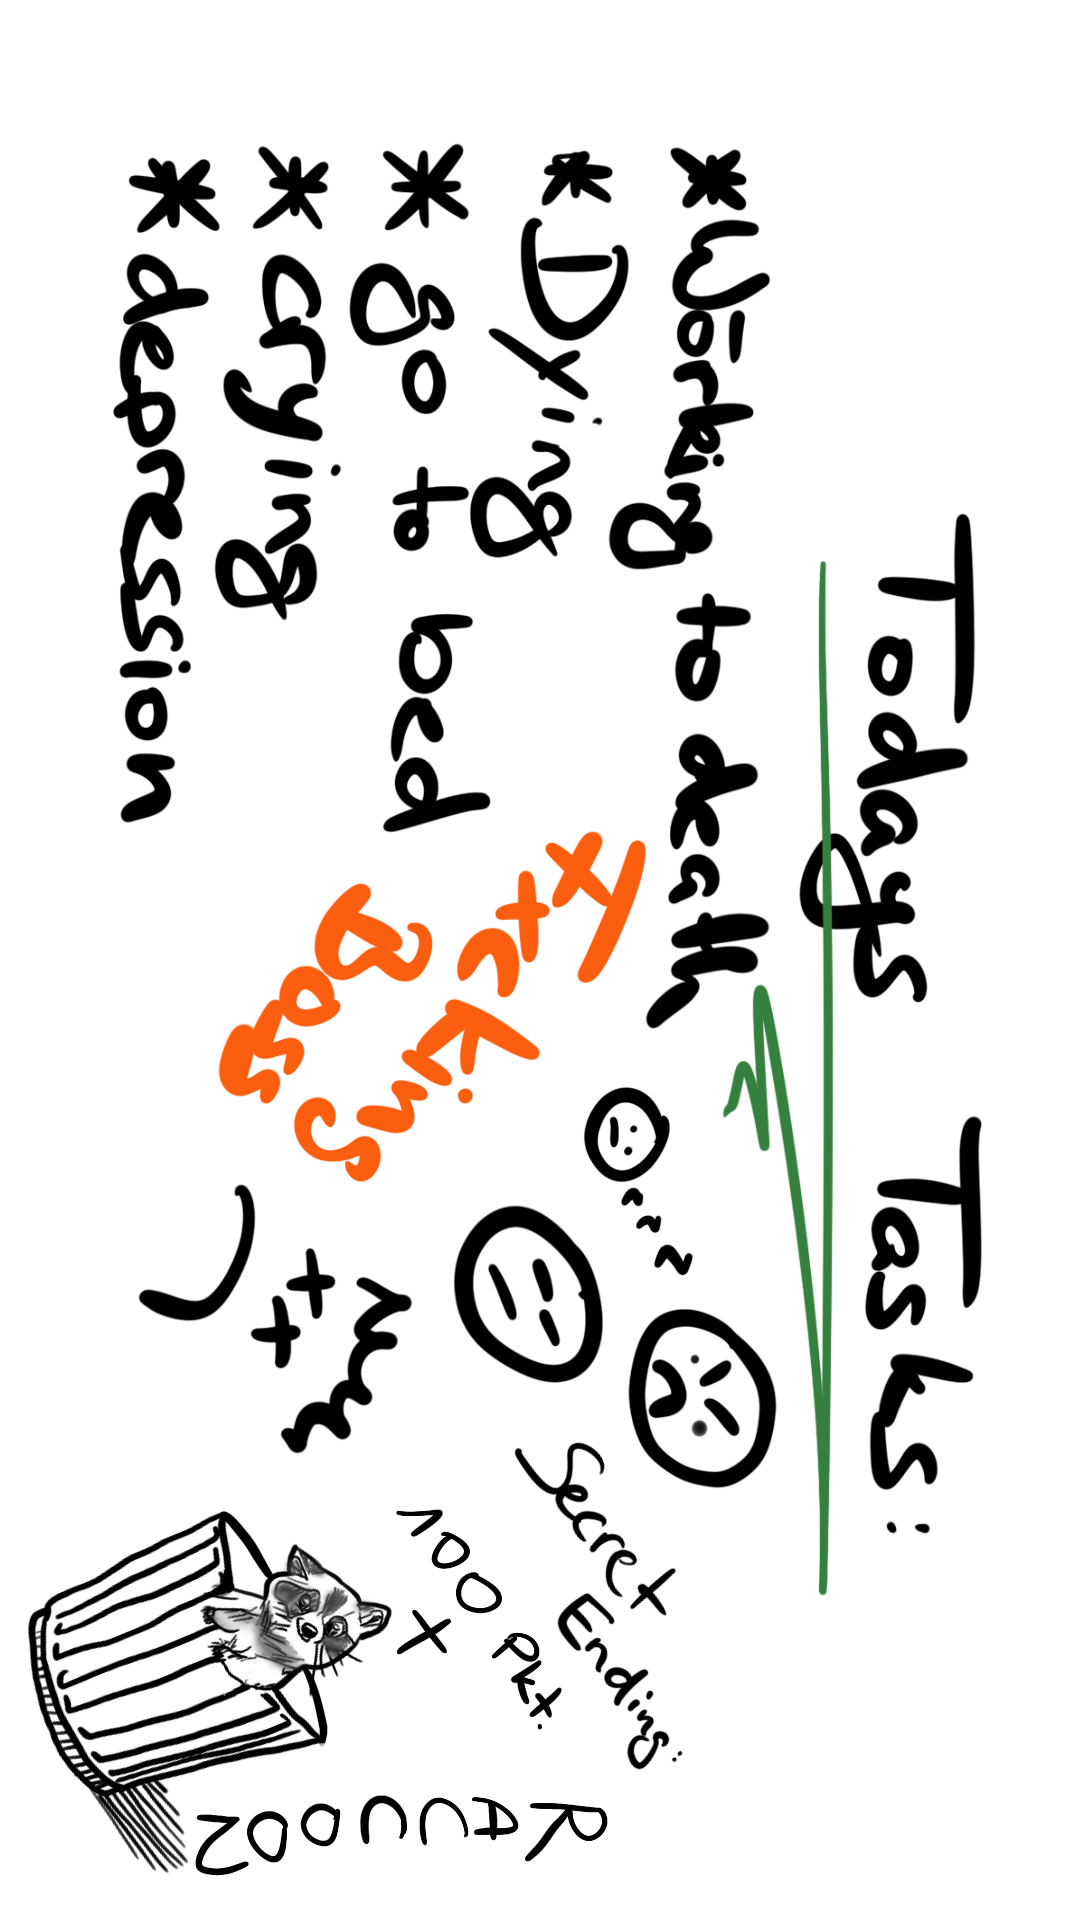 Todays Tasks:
* Working to death
* Dying
* go to bed
* crying
* depression
Boss
zzz
Secret Ending:
100 Pkt.
X
RACCOON